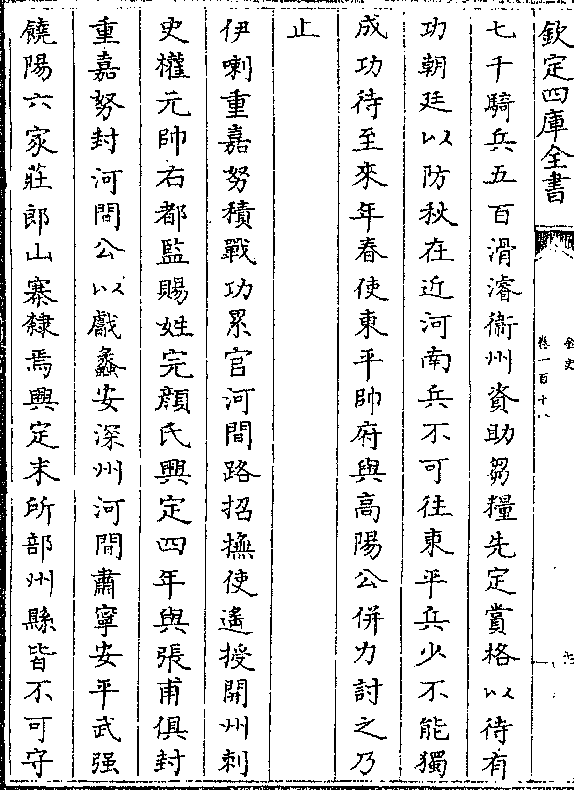 欽定四庫全書
金史
卷一百十八
七千騎兵五百滑濬衞州資助芻糧先定賞格以待有
功朝廷以防秋在近河南兵不可往東平兵少不能獨
成功待至來年春使東平帥府與高陽公併力討之乃
止
伊喇重嘉努積戰功累官河間路招撫使遙授開州刺
史權元帥右都監賜姓完顔氏興定四年與張甫俱封
重嘉努封河間公以獻蠡安深州河間肅寧安平武强
饒陽六家莊郎山寨隸焉興定末所部州縣皆不可守